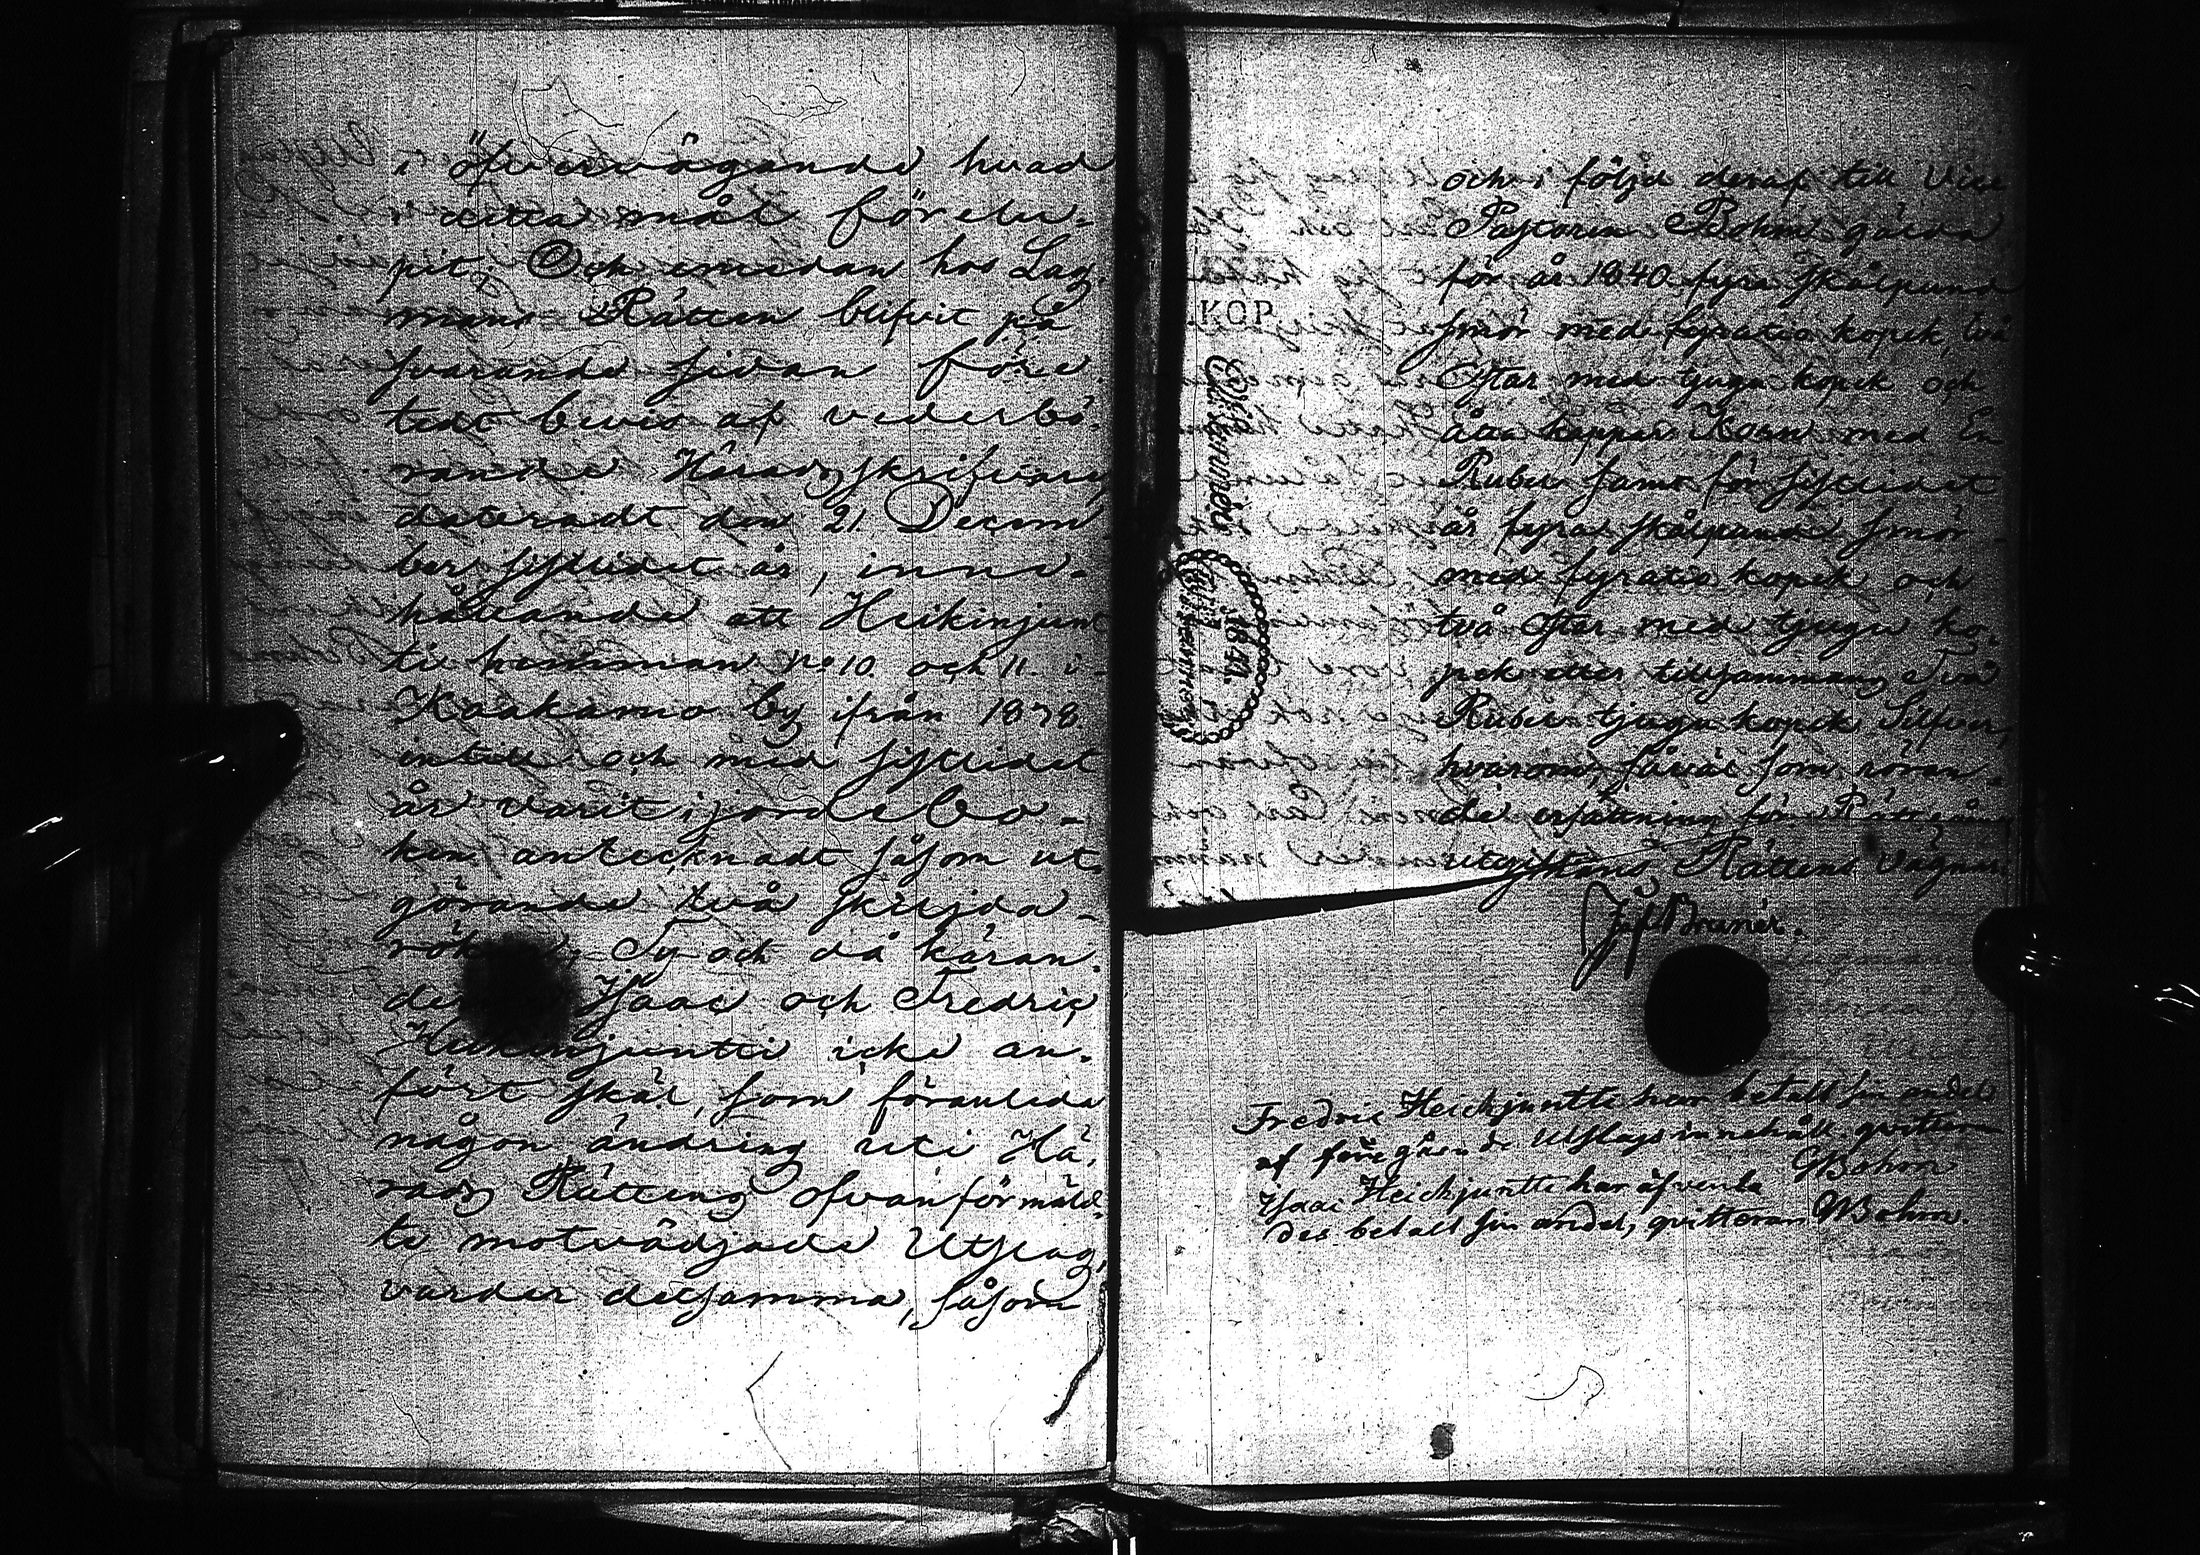 i öfvervägande hvad
i detta mål förelu-
pit; Och emedan hos Lag-
mans Rätten blifvit på
svarande sidan före-
tedt bevis af vederbö-
rande Häradsskrifvare,
dateradt den 21 Decem-
ber sistlidet år, inne-
hållande att Heikinjunt-
ti hemman No 10. och 11. i
Kaakamo by ifrån 1878
intill och med sistlidet
år varit i jordebo-
ken antecknadt såsom ut-
görande två skiljda
rök Ty och då käran-
de Isaac och Fredric
Heikinjuntti icke an-
fört skäl, som föranleda
någon ändring uti Hä-
rads Rättens ofvanförmäld-
te motvädjade Utslag,
varder detsamma, såsom
och i följd deraf till Vice
Pastorn Bohm gälda
för år 1840 fyra skålpund
smör med fyratio kopek, två
Ostar med tjugu kopek och
åtta kappar Korn med En
Rubel samt för sistlidet
år fyra skålpund smör
med fyratio kopek och
två Ostar med tjugu ko-
pek eller tillsammans Två
Rubel tjugu kopek Silfver,
hvarom, såväl som röran-
de ersättning för Rättegångs
Rättens vägnar.
KOP.
1841.
Fredric Heickjuntti har betalt sin andel
af föregående Utslags innehåll. qvitteras
Bohm
Isaac Heickjuntti har äfvenle
des betalt sin andel, qvitteras Bohm.